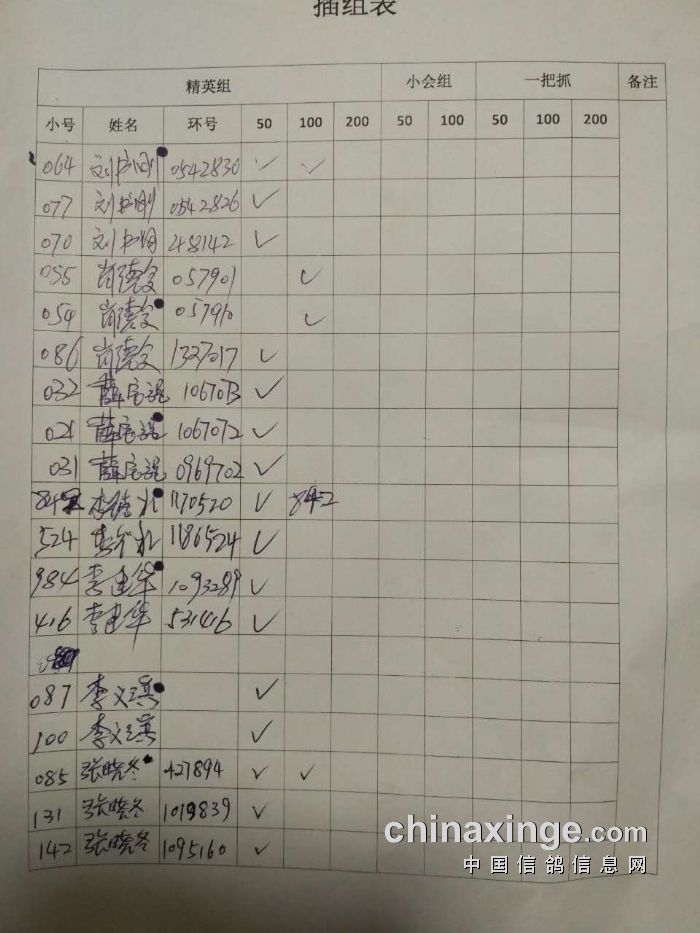 插组表
精英组 小会组 一把抓 备注
小号 姓名 环号 50 100 200 50 100 50 100 200
064 0542830 ✓ ✓
077 0542826 ✓
070 248142 ✓
055 肖德文 057901 ✓
054 肖德文 05791 ✓
086 肖德文 1327017 ✓
032 10670 ✓
021 1067072 ✓
031 0969702 ✓
李 1170520 ✓ 842
524 李 1186524 ✓
984 李建华 1093289 ✓
416 李建华 531416 ✓
087 李文 ✓
100 李文 ✓
085 张晓冬 427894 ✓ ✓
131 张晓冬 1019839 ✓
142 张晓冬 1095160 ✓
chinaxinge.com
中国信鸽信息网